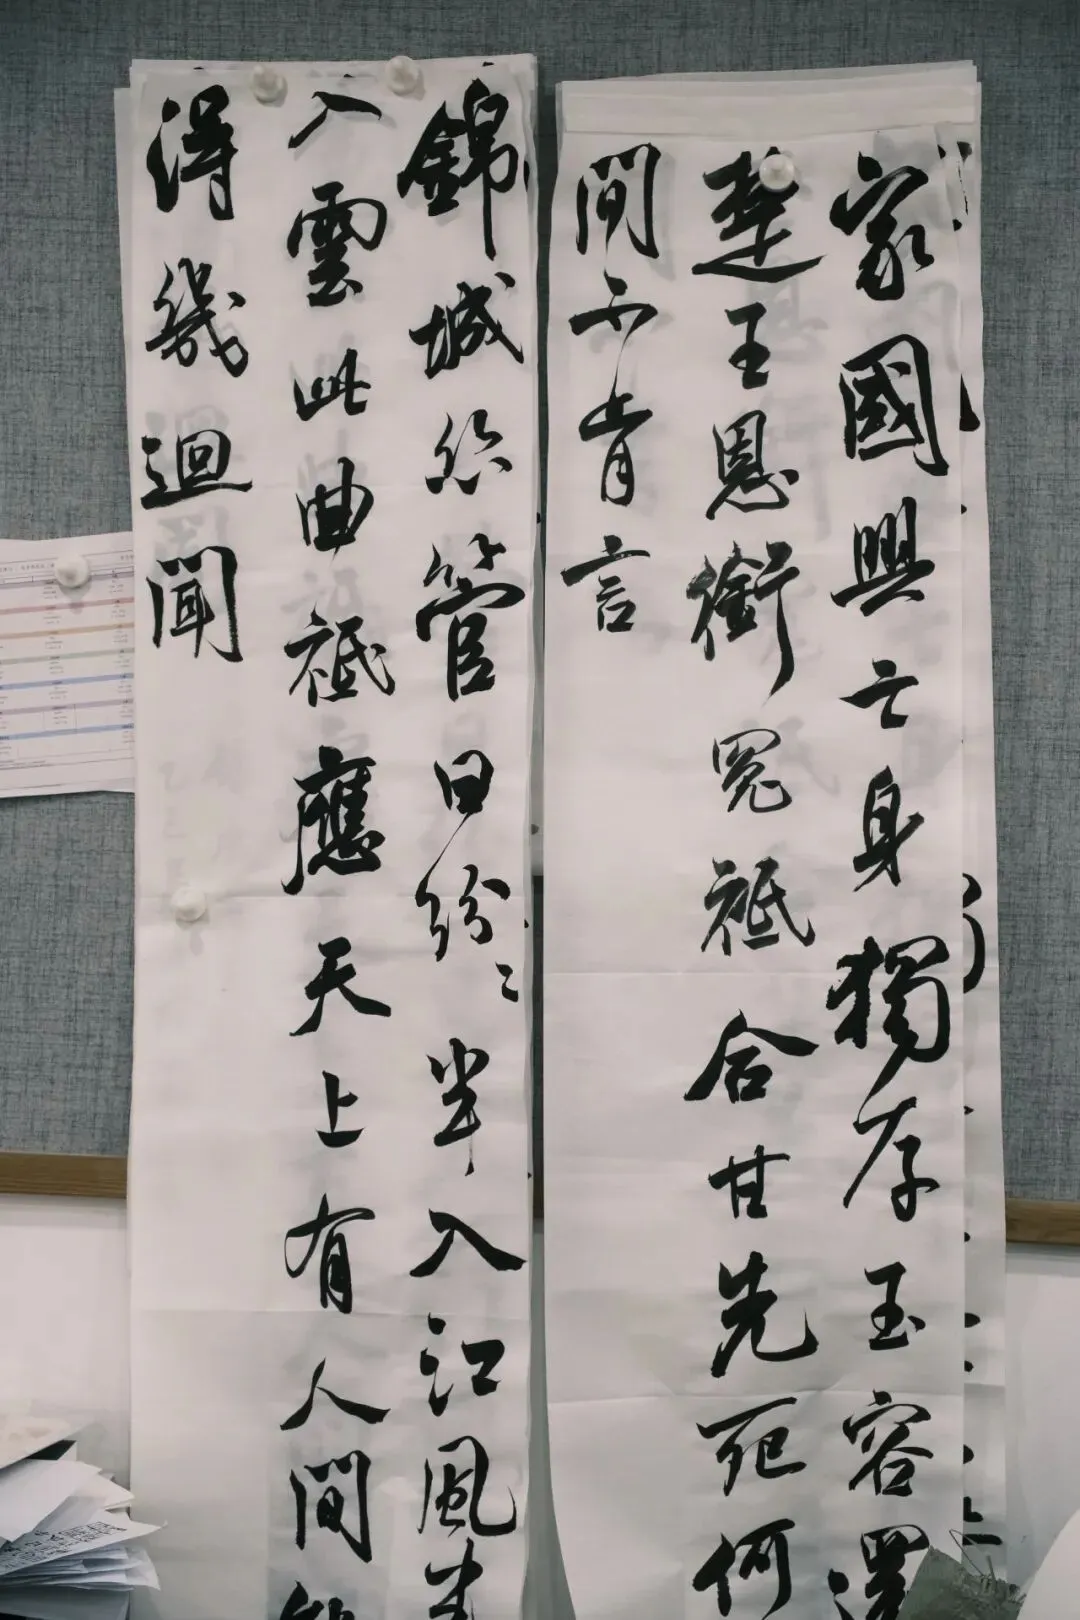 家國興亡身獨存玉容還
楚王恩銜冤祗合甘先死何
間不肯言
錦城絲管日紛〻半入江風半
入雲此曲祗應天上有人間
得幾迴聞